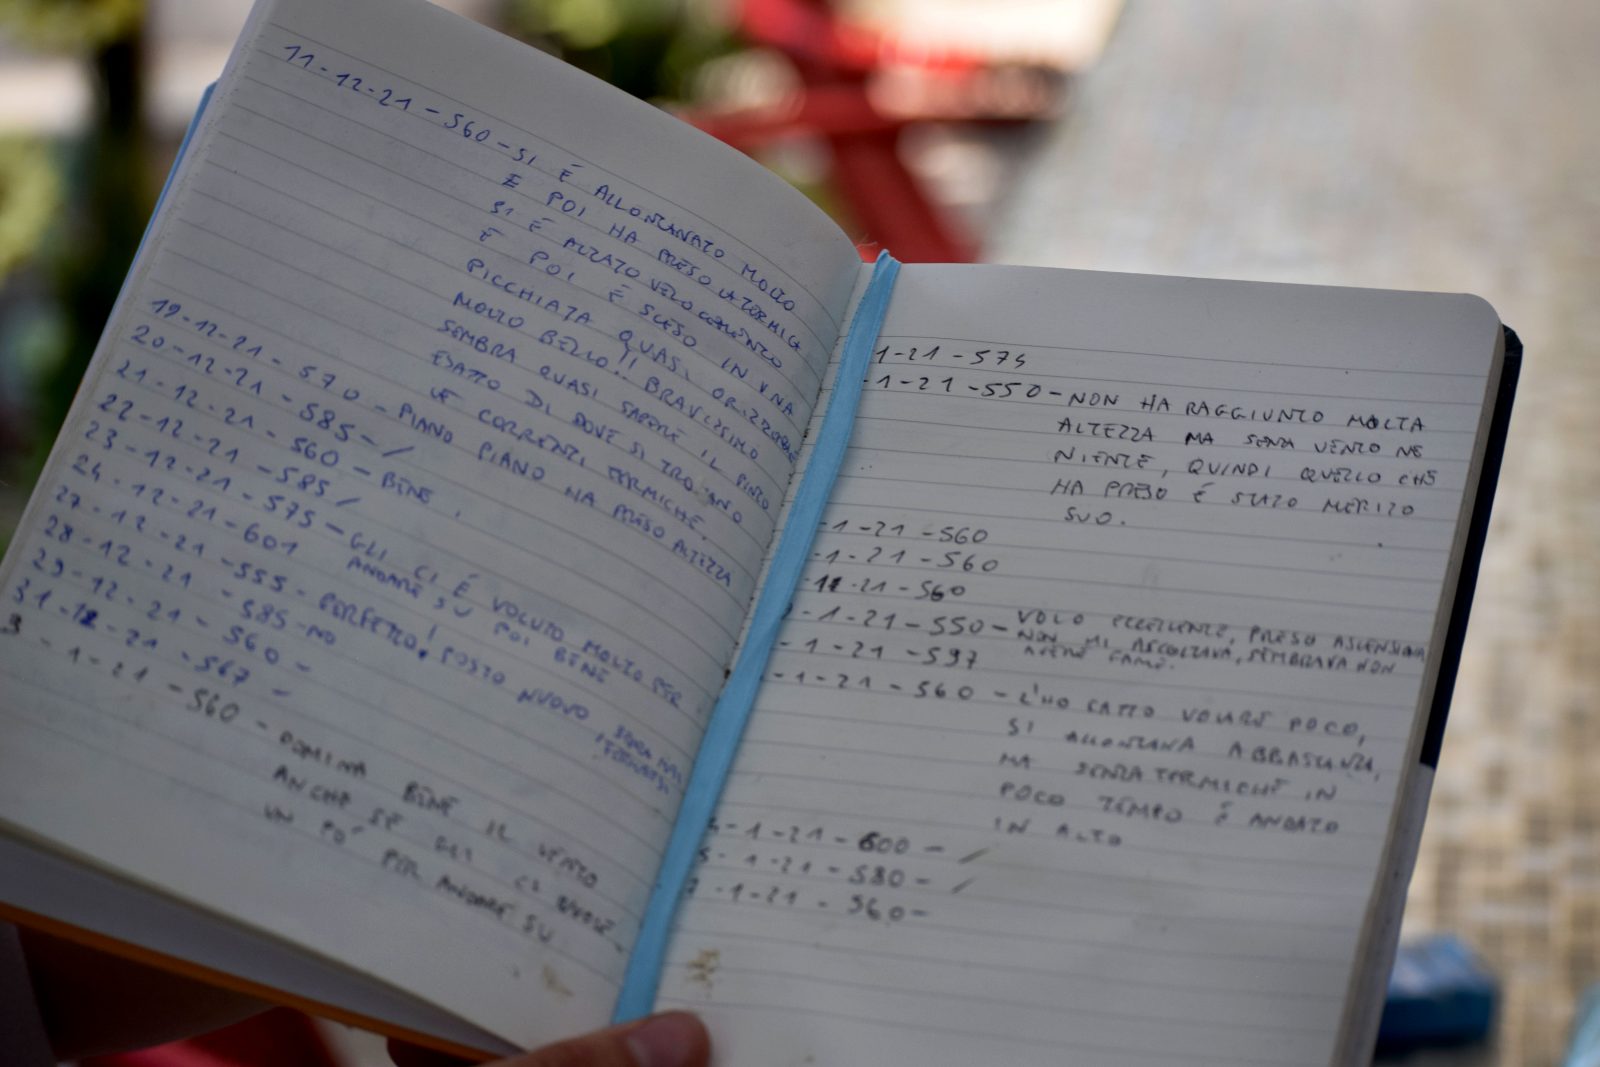 11-12-21-560-SI È ALLONTANATO MOLTO
E POI HA PRESO LA TERMICA
SI È ALZATO VELOCEMENTE
E POI È SCESO IN UNA
PICCHIATA QUASI ORIZZONTALE
MOLTO BELLO!! BRAVISSIMO
SEMBRA QUASI SAPERE IL PUNTO
ESATTO DI DOVE SI TROVANO
LE CORRENTI TERMICHE.
19-12-21-570-PIANO PIANO HA PRESO ALTEZZA
20-12-21-585-/
21-12-21-560-BENE.
22-12-21-585/
23-12-21-575-GLI CI È VOLUTO MOLTO PER
ANDARE SU POI BENE
24-12-21-601
27-12-21-555-PERFETTO! POSTO NUOVO
28-12-21-585-NO
29-12-21-560-
31-12-21-567-
3-1-21-560-DOMINA BENE IL VENTO
ANCHE SE GLI CI VUOLE
UN PO' PER ANDARE SU
1-21-574
-1-21-550-NON HA RAGGIUNTO MOLTA
ALTEZZA MA SENZA VENTO NE
NIENTE, QUINDI QUELLO CHE
HA PRESO È STATO MERITO
SUO.
-1-21-560
-1-21-560
-21-560
-1-21-550-VOLO ECCELLENTE, PRESO ASCENSIONI
NON MI ASCOLTAVA, SEMBRAVA NON
AVERE FAME.
-1-21-597
-1-21-560-L'HO FATTO VOLARE POCO,
SI ALLONTANA ABBASTANZA,
MA SENZA TERMICHE IN
POCO TEMPO È ANDATO
IN ALTO
-1-21-600-/
-1-21-580-/
-1-21-560-